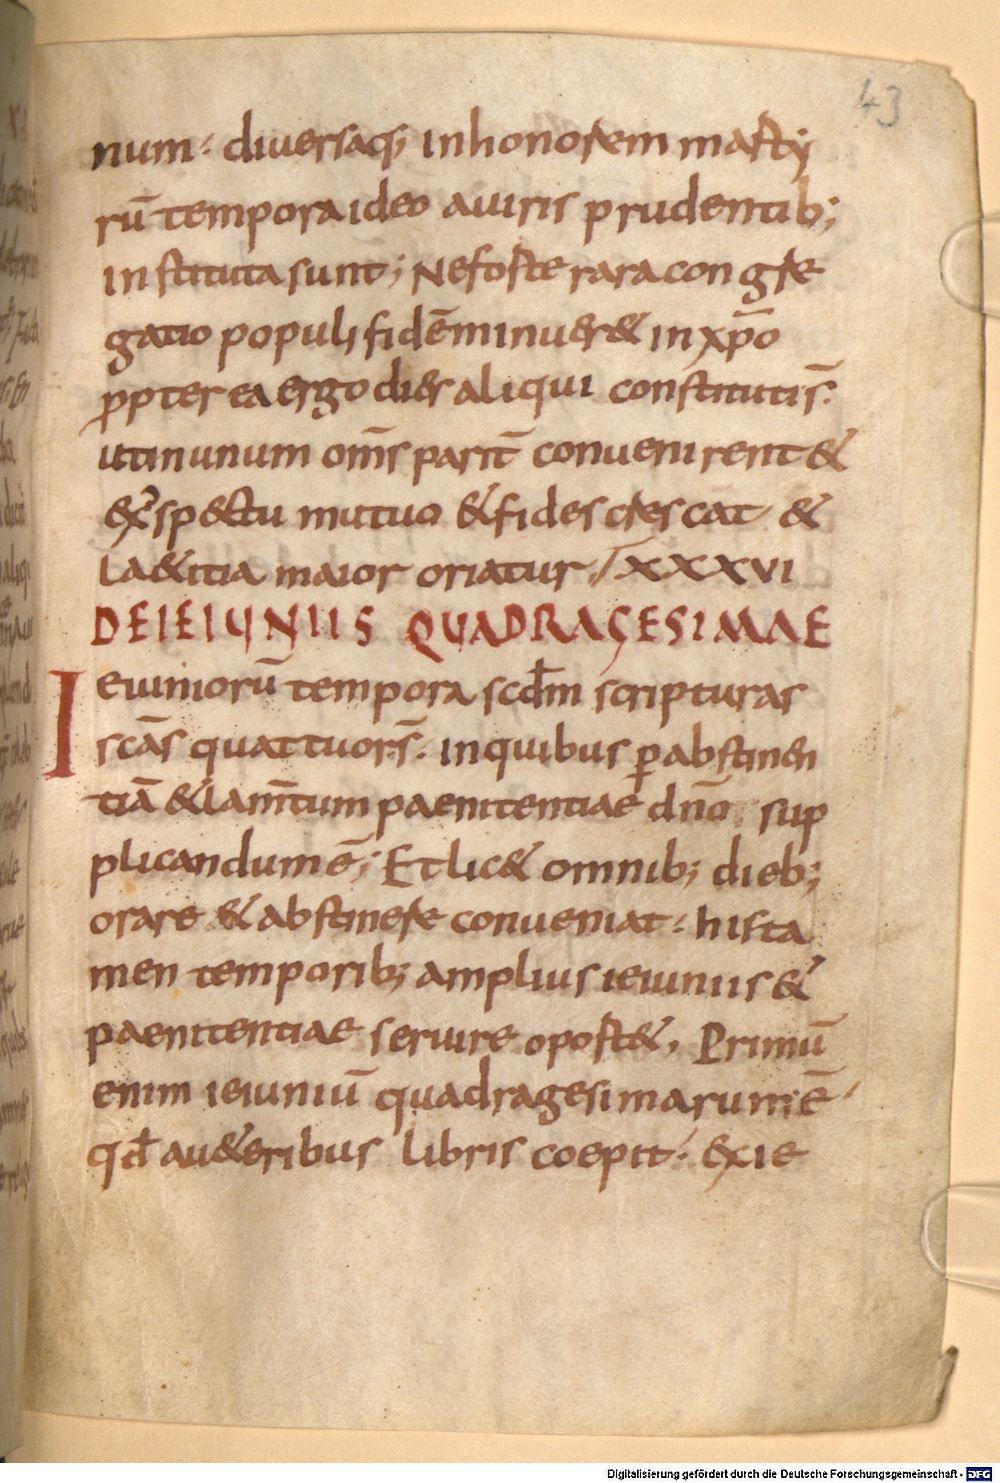 43
num· diuersaq; inhonorem marty
rū tempora ideo auiris prudentib;
instituta sunt; Neforte rara congre
gatio populi fidēminueret& inxp̄o
ꝓpter ea ergo dies aliqui constituti s̄·
utinunum om̄s parit̄ conuenirent &
&x̓sp&ctu mutuo &fides crescāt &
la&itia maior oriatur· XXXVI
DEIEIUNIIS QUADRAGESIMAE
Ieiuniorū tempora scd̄m scripturas
scās quattuor s̄· inquibus ꝑabstinen
tiā &lam̄tum paenitentiae dn̄o sup
plicandum ē; Etlic& omnib; dieb;
orare &abstinere conueniat· his ta
men temporib; amplius ieiuniis &
paenitentiae seruire oport&, Primū
enim ieiuniū quadragesimarum ē
qd̄ au&eribus libris coepit· exie
Digitalisierung gefördert durch die Deutsche Forschungsgemeinschaft - DFG